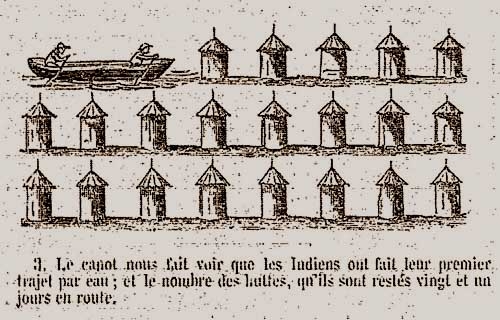 3. Le canot nous fait voir que les Indiens ont fait leur premier
trajet par eau ; et le nombre des huttes, qu'ils sont restés vingt et un
jours en route.